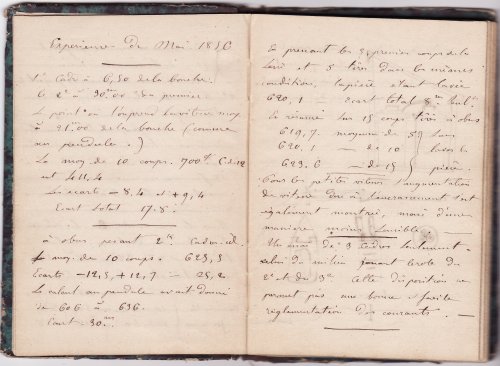 Expérience de Mai 18
1er Cadre à 6,50 de la bouche.
le 2e à 30m00 du premier
le point où l'on prend la vitesse moy
à 21,00 de la bouche (comme
au pendule.)
la moy. de 10 coups. 700
est 411,4
les écarts - 8,4 et + 9,4
Ecart total 17,8.
à obus pesant 2k Cadres id.
moy. de 10 coups. 623,3
Ecarts - 12,5, + 12,7 = 25,2
le calcul au pendule avait donné
de 606 à 636.
Ecart 30
En prenant les 5 premiers coups de la
série et 5 tirés dans les mêmes
conditions, la pièce étant lavée
620,1 écart total 8m
En résumé sur 15 coups tirés à obus
619,7 moyenne de 5 sans
620,1 — de 10 laver la
623.6 — de 15 pièce.
Sous les petites vitesses l'augmentation
de vitesse due à l'encrassement est
également montrée, mais d'une
manière moins sensible —
Un essai de 3 Cadres seulement
celui du milieu jouant le rôle du
2e et du 3e. Cette disposition ne
permet pas une bonne et facile
réglementation des courants. —